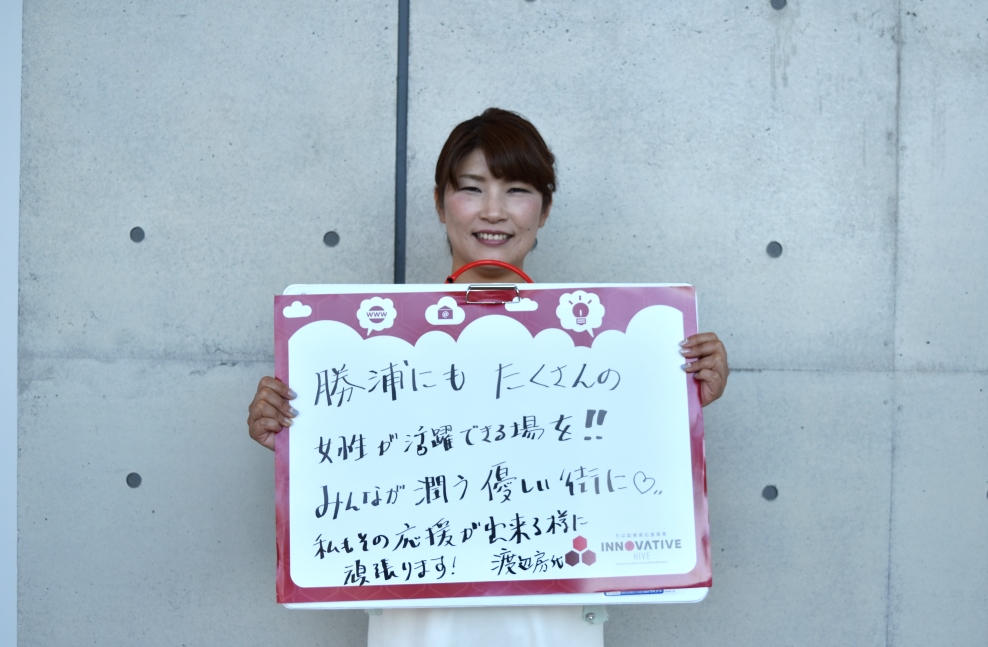 www
@
勝浦にも たくさんの
女性が活躍できる場を!!
みんなが潤う優しい街に♡..
私もその応援が出来る様に
頑張ります! 渡辺房代
INNOVATIVE
HIVE